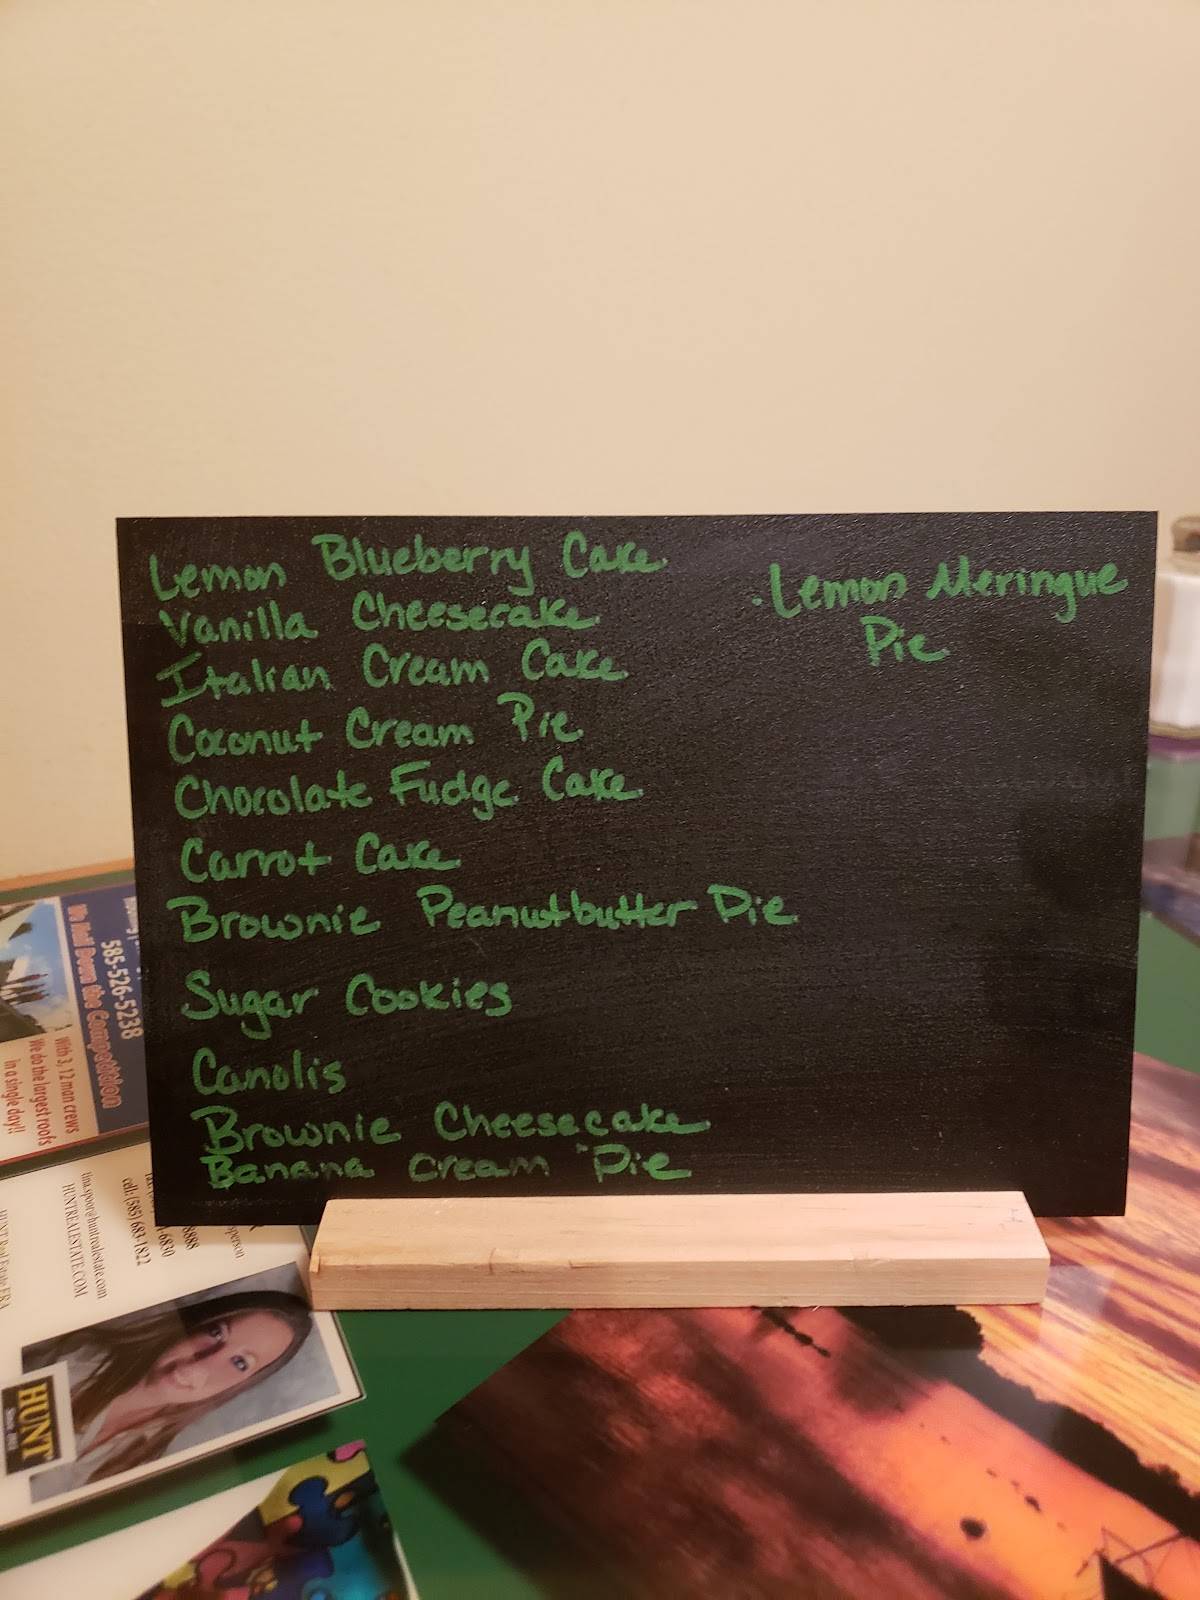 Lemon Blueberry Cake
Vanilla Cheesecake
Italian Cream Cake
Coconut Cream Pie
Chocolate Fudge Cake
Carrot Cake
Brownie Peanutbutter Pie
Sugar Cookies
Canolis
Brownie Cheesecake
Banana Cream Pie
. Lemon Meringue
Pie
585-526-5238
We Nail Down the Competition
With 3, 12 man crews
We do the largest roofs
in a single day!!
cell: (585) 683-1822
tina.spoor@huntrealestate.com
HUNTREALESTATE.COM
HUNT Real Estate ERA
HUNT